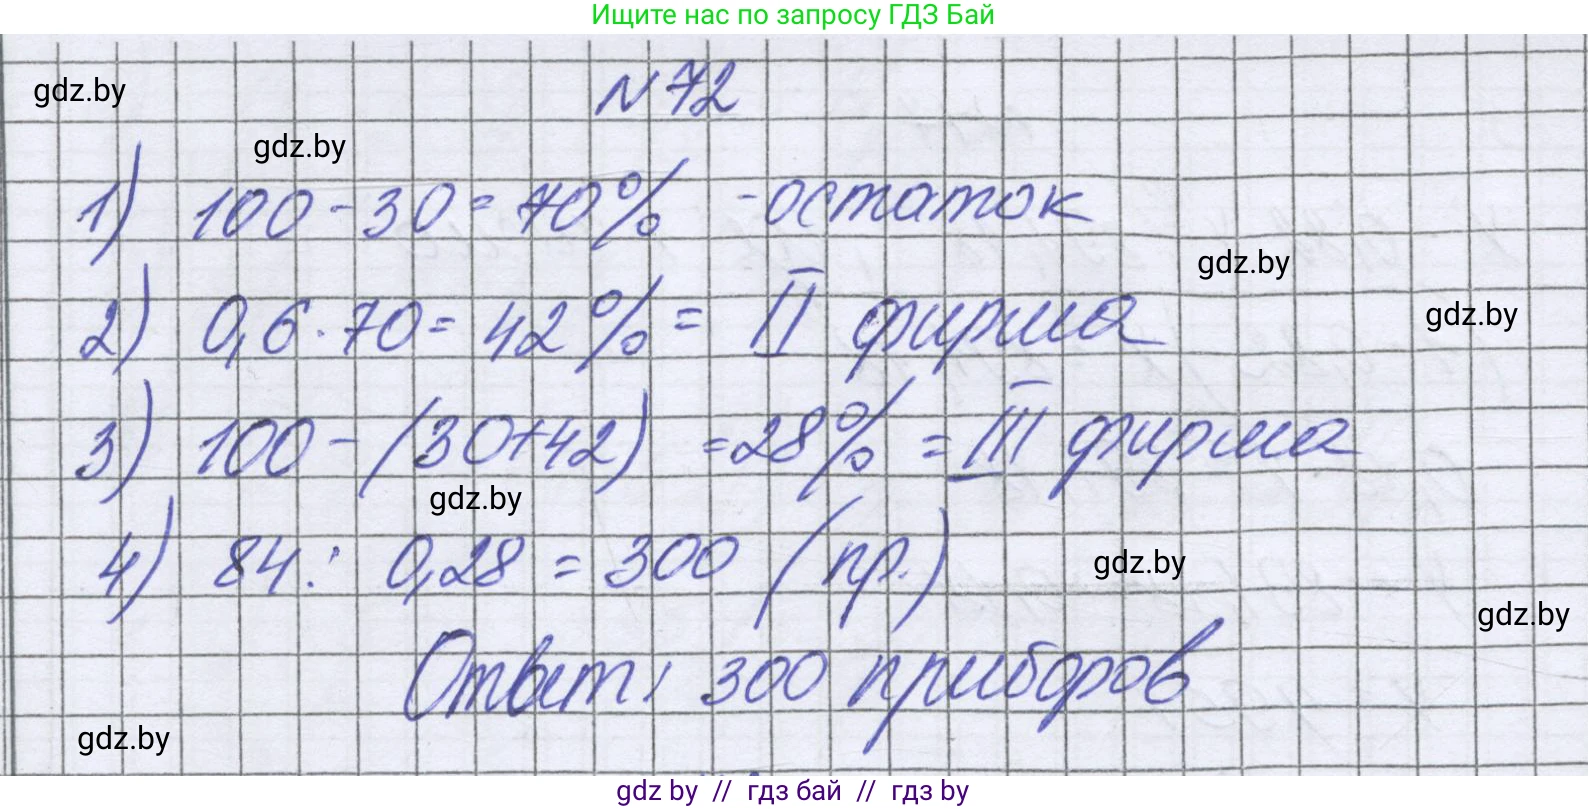 Ищите нас по запросу ГДЗ Бай
N 72
gdz.by
gdz.by
1) 100 - 30 = 70% - остаток
gdz.by
2) 0,6 · 70 = 42% = II фирма
gdz.by
3) 100 - (30+42) = 28% = III фирма
gdz.by
4) 84 : 0,28 = 300 (пр.)
gdz.by
gdz.by
Ответ: 300 приборов
gdz.by
gdz by // гдз бай // гдз by